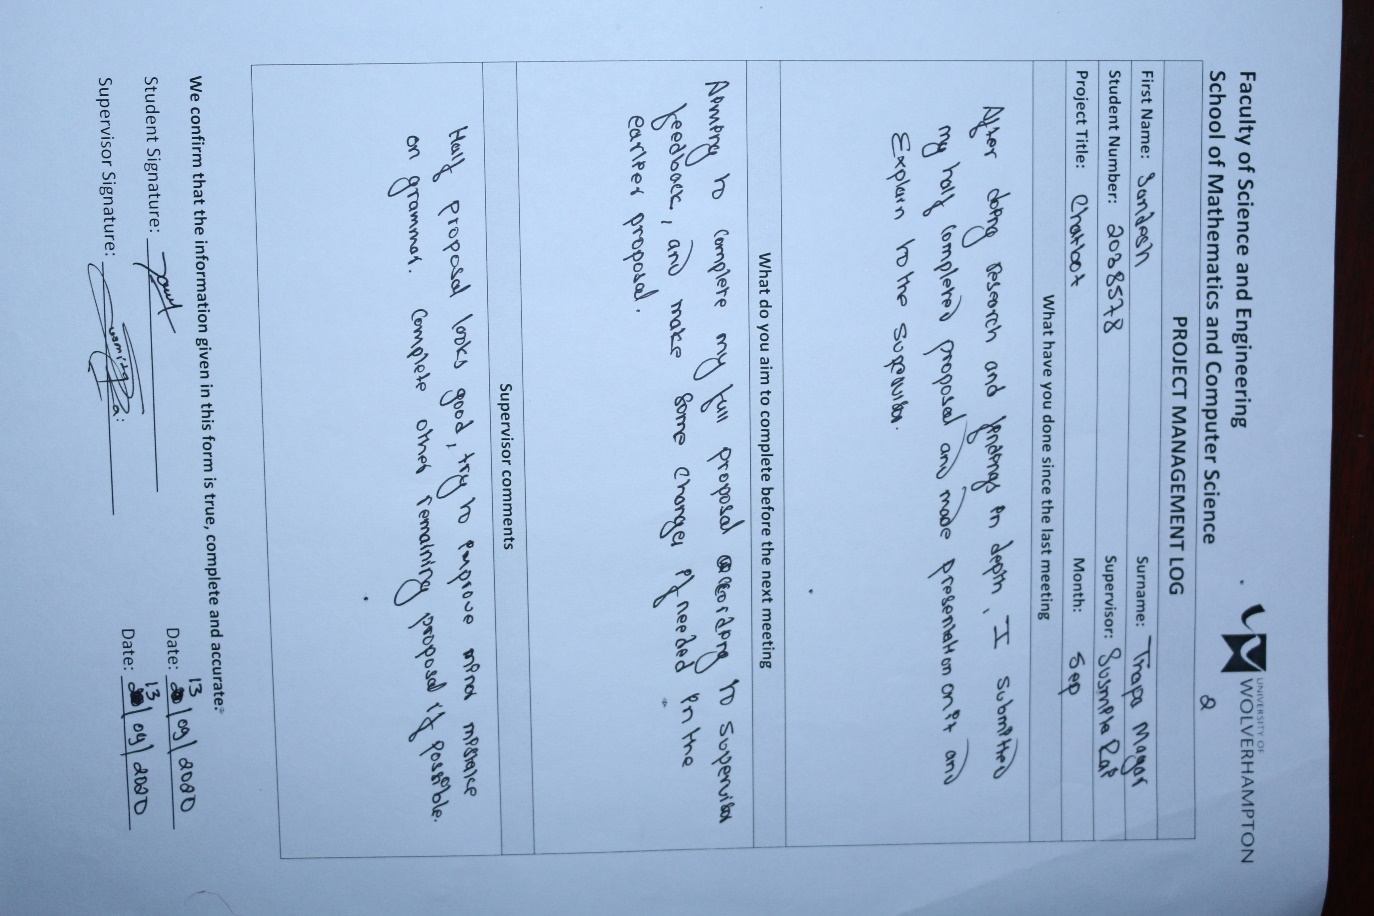 Faculty of Science and Engineering
School of Mathematics and Computer Science
UNIVERSITY OF
WOLVERHAMPTON
2
PROJECT MANAGEMENT LOG
First Name: Sandesh Surname: Thapa Magar
Student Number: 2038578 Supervisor: Susmita Rai
Project Title: Chatbot Month: Sep
What have you done since the last meeting
After doing research and findings in depth, I submitted
my half completed proposal and made presentation on it and
Explain to the supervisor.
What do you aim to complete before the next meeting
Aiming to complete my full proposal according to supervisor
feedback, and make some changes if needed in the
earlier proposal.
Supervisor comments
Half proposal looks good, try to improve minor mistake
on grammar. Complete other remaining proposal if possible.
We confirm that the information given in this form is true, complete and accurate.
Student Signature: Date: 13/09/2020
Supervisor Signature: Date: 13/09/2020